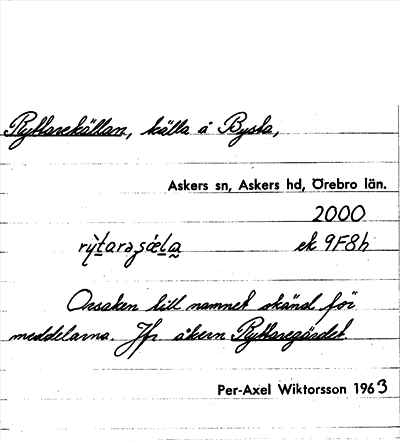 Ryttarekällan, källa å Bysta,
Askers sn, Askers hd, Örebro län.
2000
ek 9F8h
Orsaken till namnet okänd för
meddelarna. Jfr åkern Ryttaregärdet.
Per-Axel Wiktorsson 1963